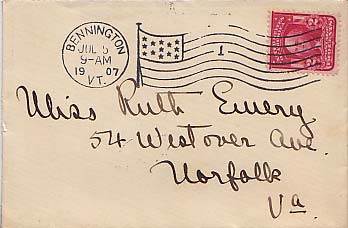 BENNINGTON
JUL 5
9-AM
1907
VT.
1
2 2
Miss Ruth Emery
54 Westover Ave.
Norfolk
Va.